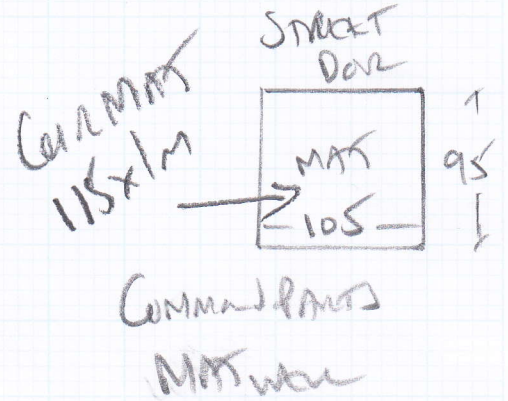 STREET
DOOR
COIR MAT
115x1M
MAT
95
105
COMMON PARTS
MAT WELL